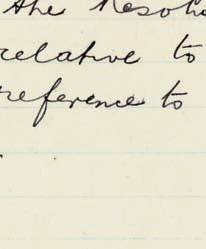 the Resolu
relative to
reference to